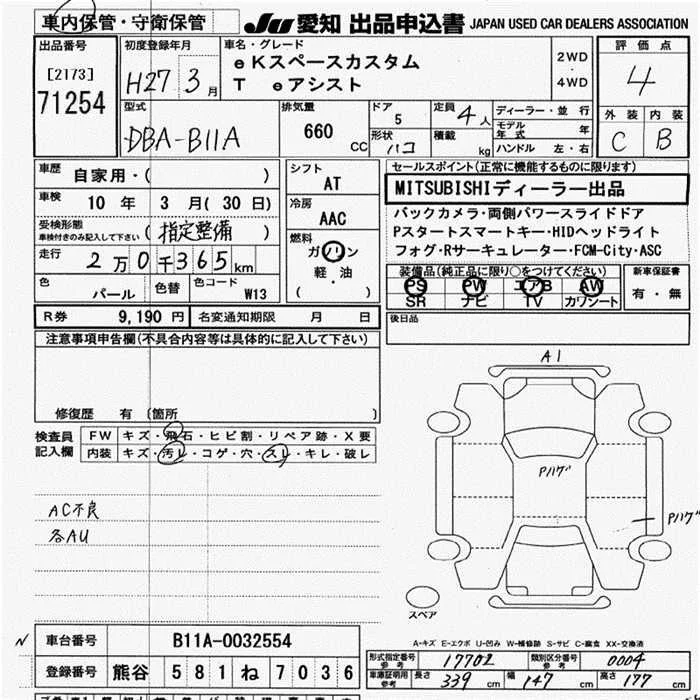 車内保管・守衛保管
JU 愛知 出品申込書 JAPAN USED CAR DEALERS ASSOCIATION
出品番号
[2173]
71254
初度登録年月
H27 3月
車名・グレード
eKスペースカスタム
T eアシスト
2WD
・
4WD
評価点
4
外装 内装
C B
型式
DBA-B11A
排気量
660 CC
ドア
5
形状
ハコ
定員 4人
積載 kg
ディーラー・並行
モデル年式 年
ハンドル 左・右
車歴
自家用・( )
車検
10年 3月(30日)
受検形態
車検付きのみ記入して下さい
(指定整備)
走行
2万0千365km
色
パール
色替
色コード
W13
シフト
AT
冷房
AAC
燃料
ガソリン
軽・油
( )
セールスポイント(正常に機能するものに限ります)
MITSUBISHIディーラー出品
バックカメラ・両側パワースライドドア
Pスタートスマートキー・HIDヘッドライト
フォグ・Rサーキュレーター・FCM-City・ASC
装備品(純正品に限り○をつけてください)
PS PW エアB AW
SR ナビ TV カワシート
新車保証書
有・無
R券 9,190円 名変通知期限 月 日
後日品
注意事項申告欄(不具合内容等は具体的に記入して下さい)
修復歴 有 (箇所 )
検査員
記入欄
FW キズ・飛石・ヒビ割・リペア跡・X要
内装 キズ・汚レ・コゲ・穴・スレ・キレ・破レ
AC不良
各AU
A1
Pハゲ
Pハゲ
スペア
A-キズ E-エクボ U-凹み W-補修跡 S-サビ C-腐食 XX-交換済
N
車台番号 B11A-0032554
登録番号 熊谷 581 ね 7036
形式指定番号
参考
17702
類別区分番号
参考
0004
車庫証明用
参考
長さ 339 cm 幅 147 cm 高さ 177 cm